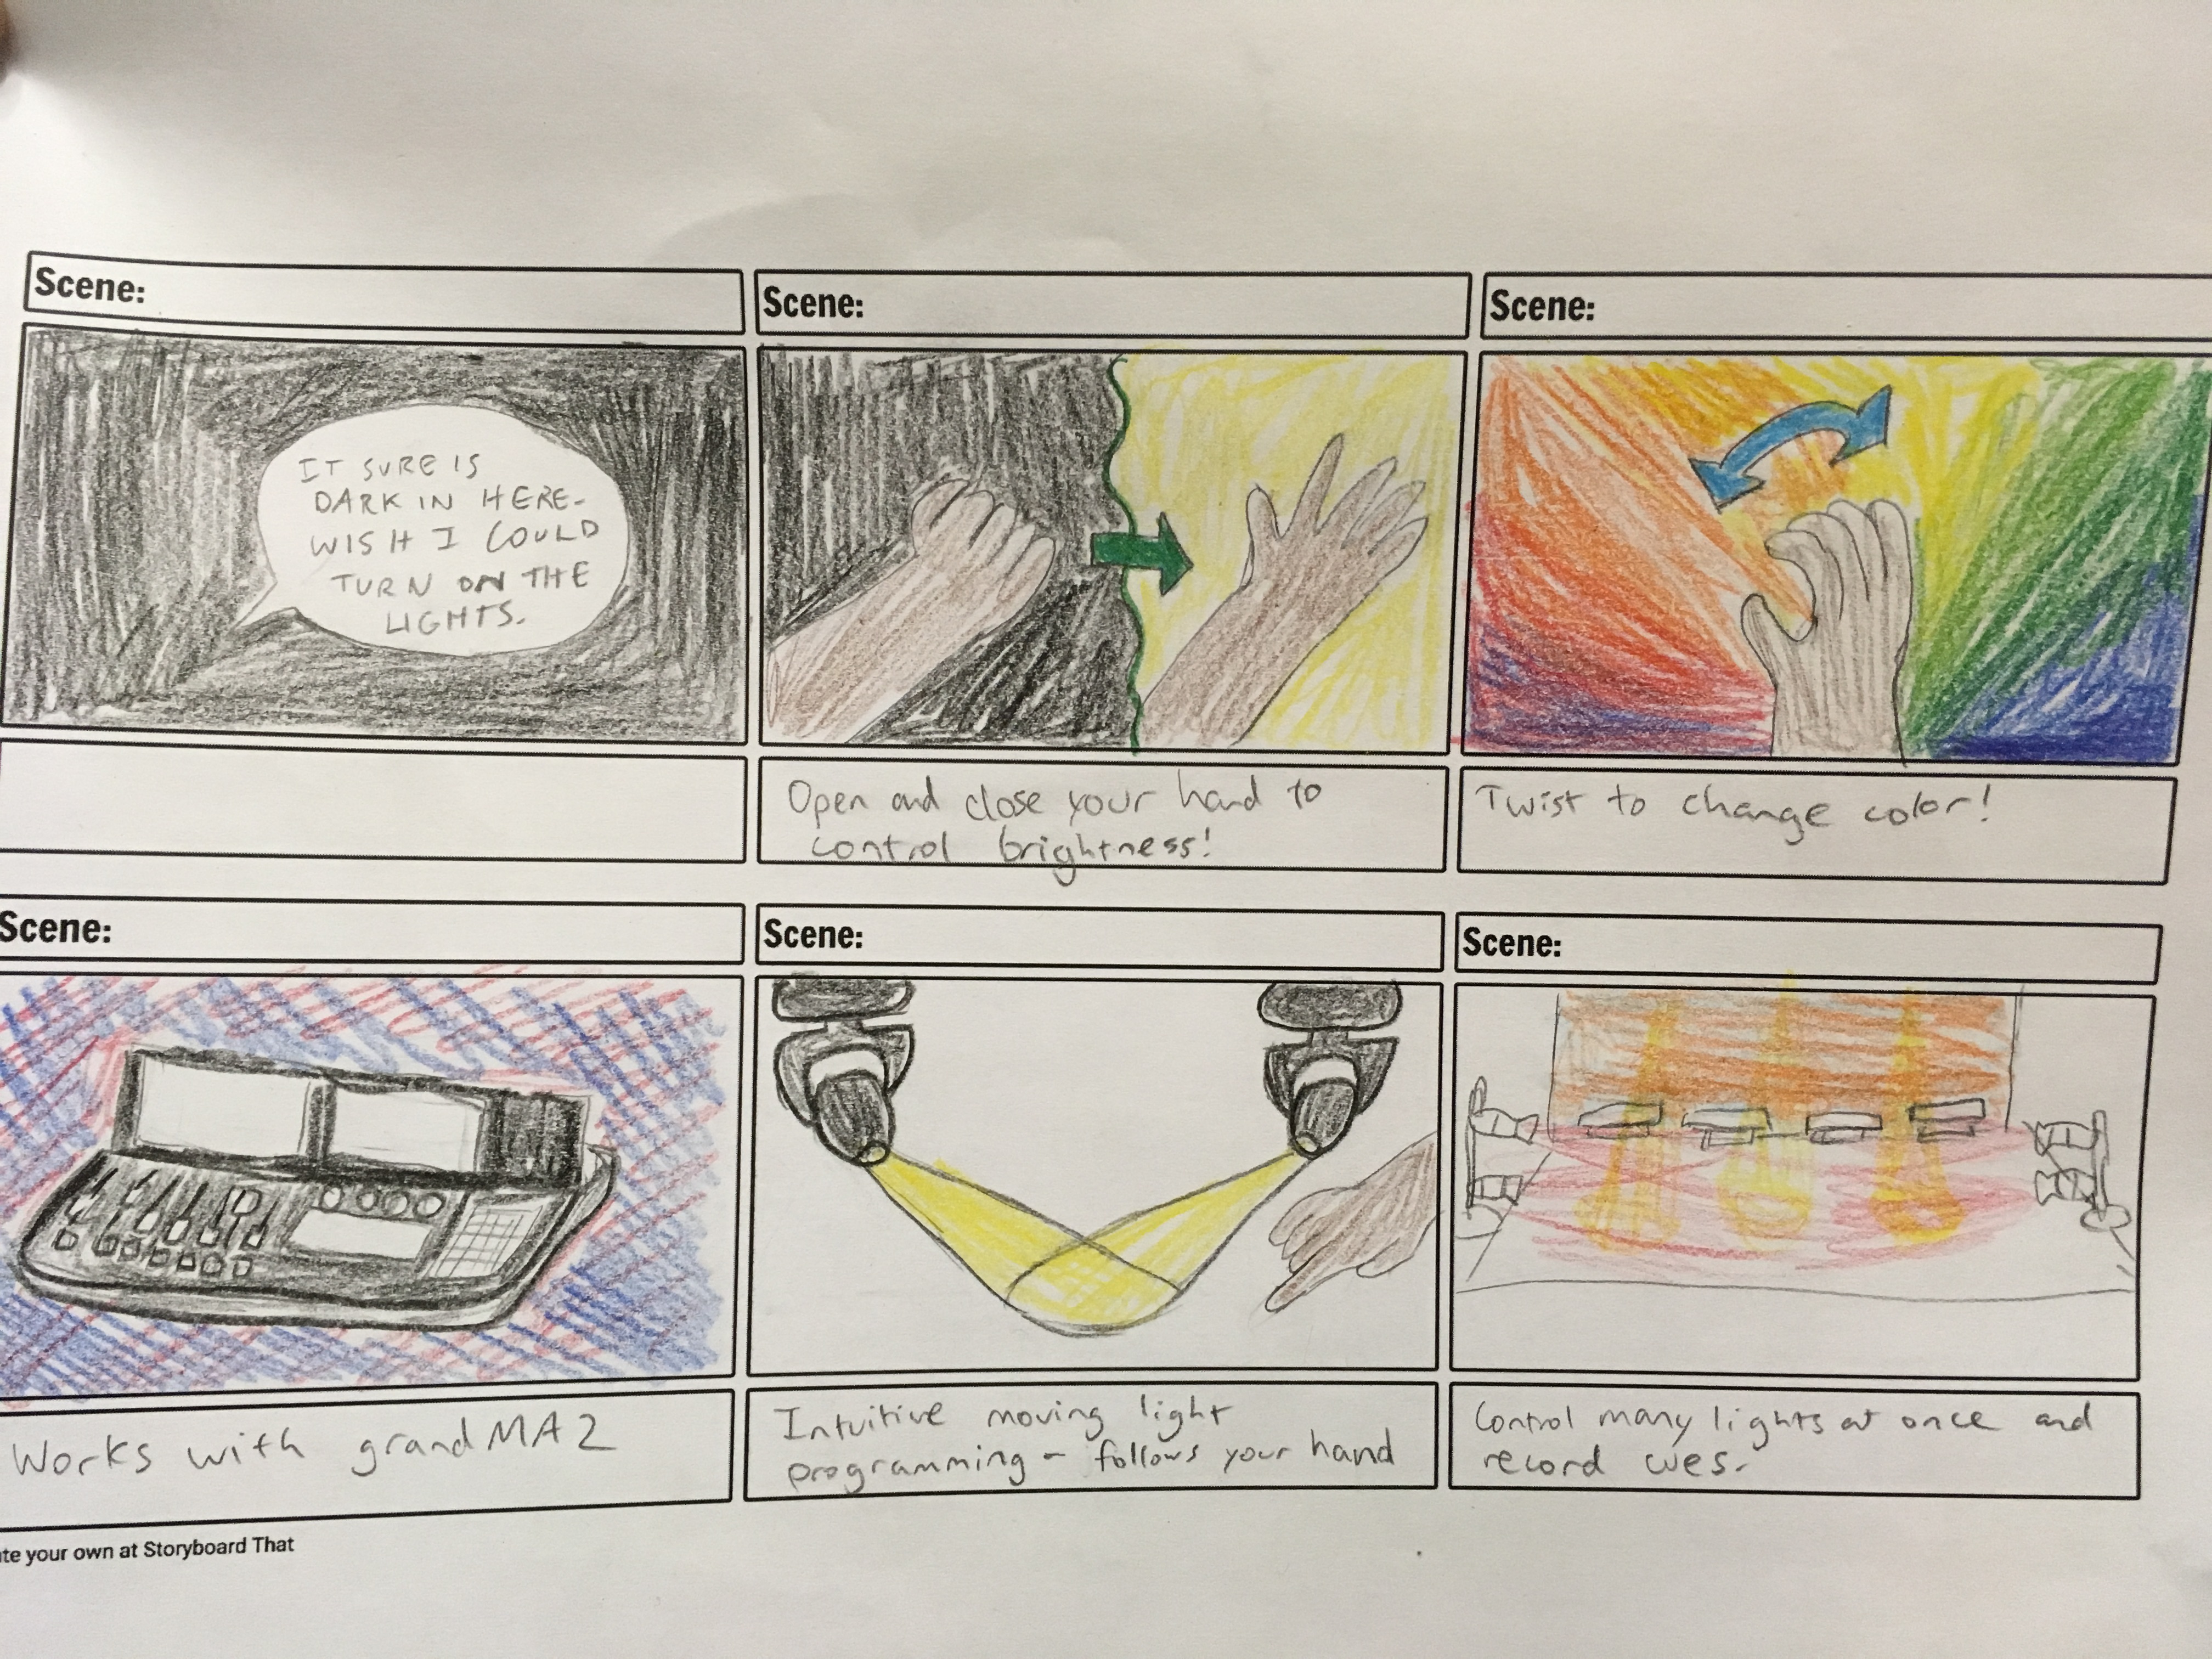 Scene:
Scene:
Scene:
IT SURE IS
DARK IN HERE-
WISH I COULD
TURN ON THE
LIGHTS.
Open and close your hand to
control brightness!
Twist to change color!
Scene:
Scene:
Scene:
Works with grandMA2
Intuitive moving light
programming - follows your hand
Control many lights at once and
record cues.
te your own at Storyboard That